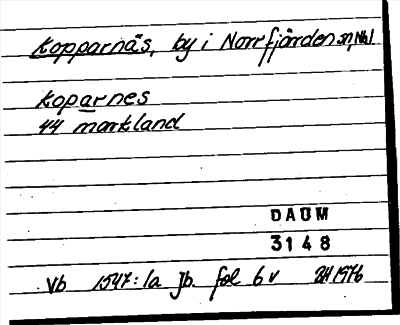 Kopparnäs, by i Norrfjärden sn, Nb l
Koparnes
44 markland
DAUM
3148
Vb 1547: 1a Jb. fol 6 v 1976